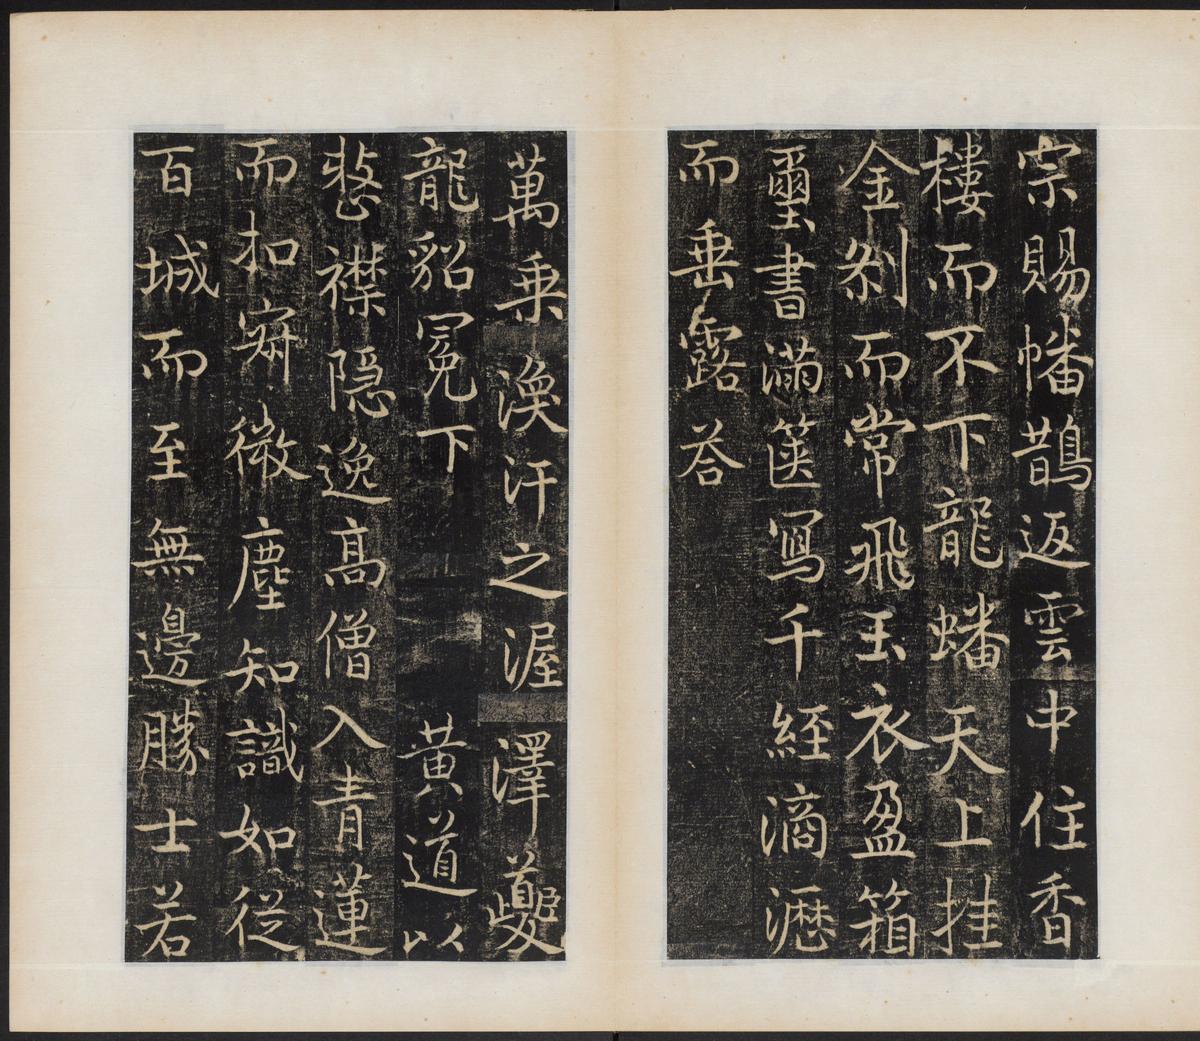 宗賜幡鵲返雲中住香
樓而不下龍蟠天上挂
金剎而常飛玉衣盈箱
璽書滿篋寫千經滴瀝
而垂露荅
萬乗渙汗之渥澤夔
龍貂冕下黄道以
整襟隐逸髙僧入青蓮
而扣寂微塵知識如從
百城而至無邊勝士若